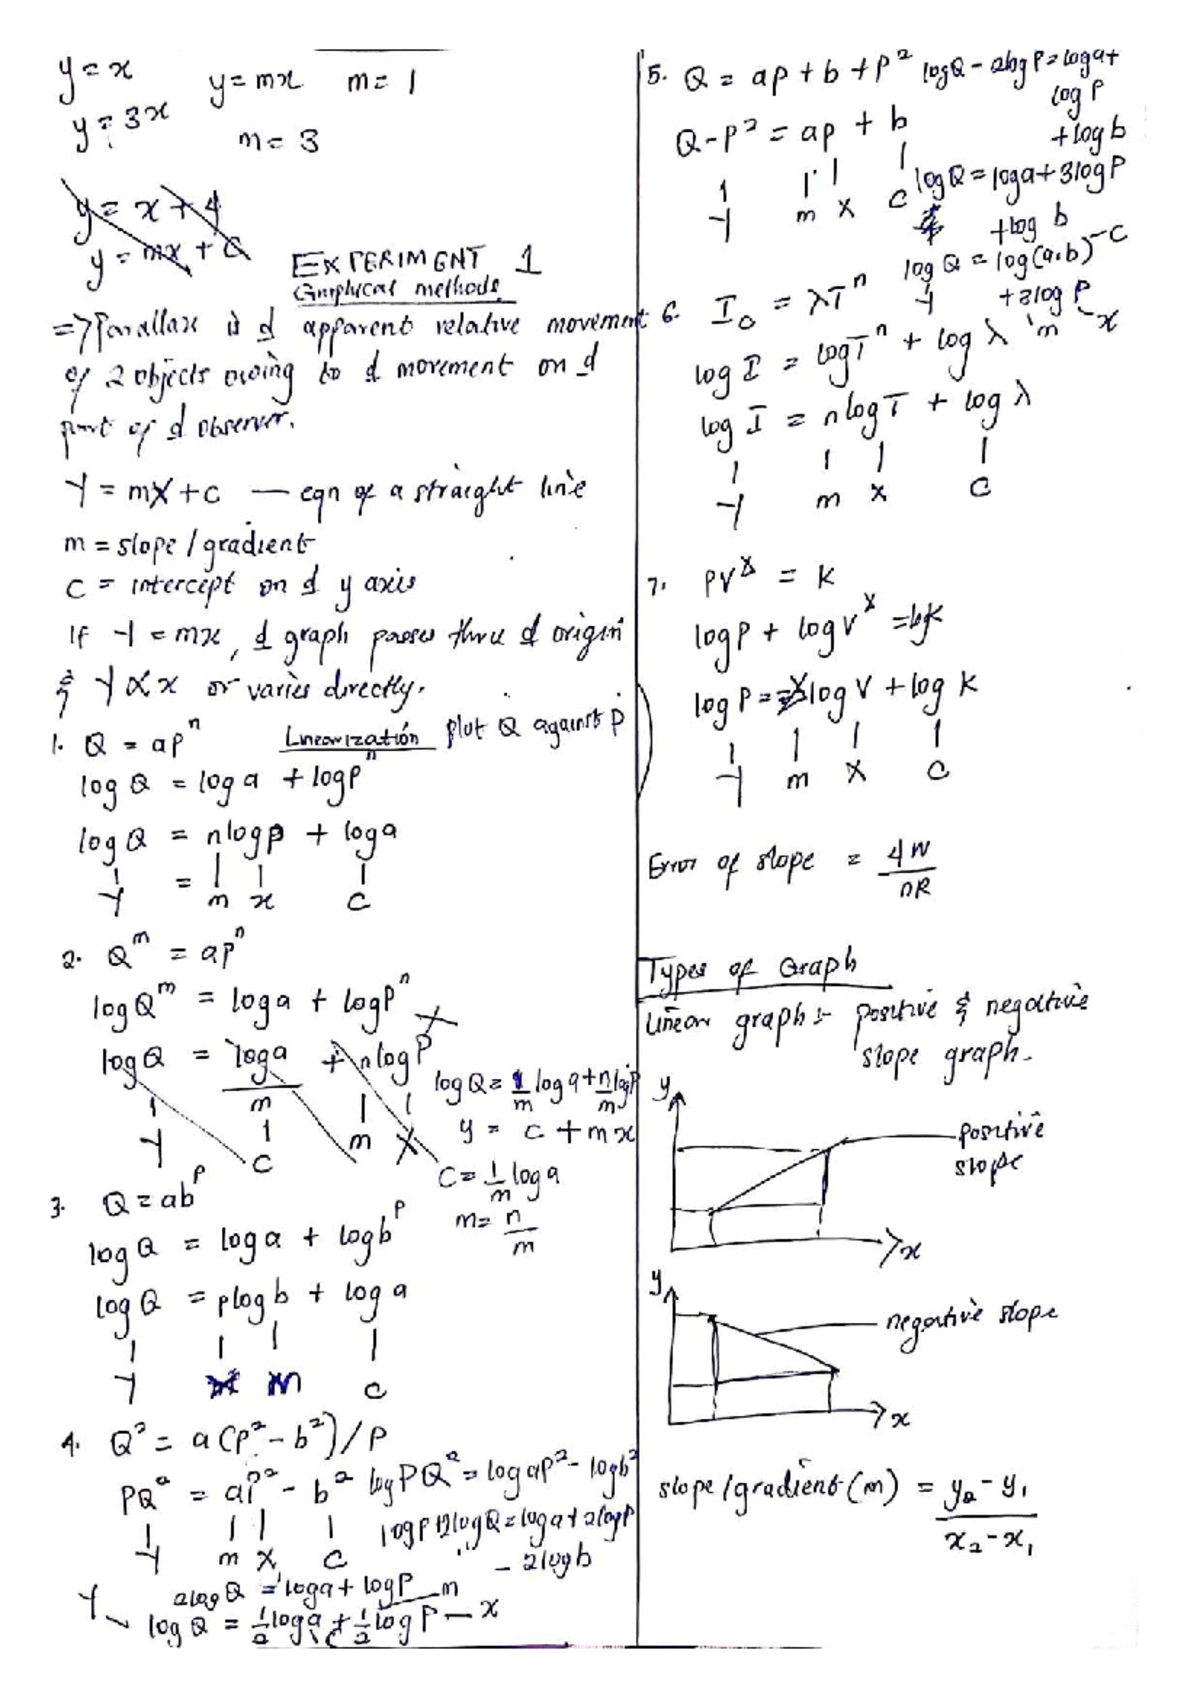 y = x
y = mx m = 1
y = 3x
m = 3
y = x + 4
y = mx + c
EXPERIMENT 1
Graphical methods
=> Parallax is d apparent relative movement
of 2 objects owing to d movement on d
part of d observer.
Y = mX + c — eqn of a straight line
m = slope / gradient
c = intercept on d y axis
If Y = mx, d graph passes thru d origin
& Y ∝ x or varies directly.
1. Q = ap^n Linearization plot Q against p
log Q = log a + log p^n
log Q = n log p + log a
Y = m x c
2. Q^m = ap^n
log Q^m = log a + log P^n
log Q = log a / m + n log P
Y c m X
log Q = 1/m log a + n/m log P
y = c + mx
c = 1/m log a
m = n/m
3. Q = ab^p
log Q = log a + log b^p
log Q = p log b + log a
Y x m c
4. Q² = a(p² - b²)/P
PQ² = ap² - b²
Y m X C
log PQ² = log ap² - log b²
log P + 2 log Q = log a + 2 log P
- 2 log b
2 log Q = log a + log P — m
Y — log Q = 1/2 log a + 1/2 log P — x
c
5. Q = ap + b + p²
Q - p² = ap + b
Y m X C
log Q - 2 log P = log a +
log P
+ log b
log Q = log a + 3 log P
+ log b
log Q = log (a.b) - c
Y + 3 log P - x
m
6. I₀ = λT^n
log I = log T^n + log λ
log I = n log T + log λ
Y m x C
7. PV^γ = K
log P + log V^γ = log K
log P = -γ log V + log K
Y m X C
Error of slope = 4W / nR
Types of Graph
Linear graph :- positive & negative
slope graph.
y
positive
slope
x
y
negative slope
x
slope / gradient (m) = y₂ - y₁ / x₂ - x₁